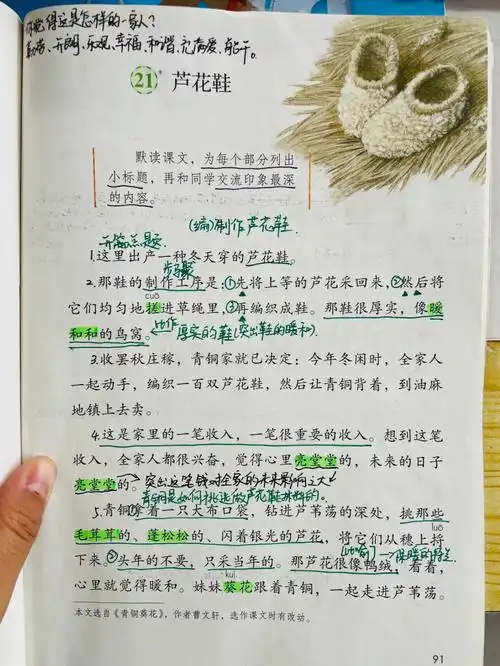 你觉得这是怎样的一家人?
勤劳、开朗、乐观、幸福、和谐、充满爱、能干。
21 芦花鞋
默读课文，为每个部分列出
小标题，再和同学交流印象最深
的内容。
(编)制作芦花鞋
开篇总是
1.这里出产一种冬天穿的芦花鞋。
步骤
2.那鞋的制作工序是：①先将上等的芦花采回来，②然后将
cuō
它们均匀地搓进草绳里，③再编织成鞋。那鞋很厚实，像暖
和和的鸟窝。
比作 厚实的鞋(突出鞋的暖和)
3.收罢秋庄稼，青铜家就已决定：今年冬闲时，全家人
一起动手，编织一百双芦花鞋，然后让青铜背着，到油麻
地镇上去卖。
4.这是家里的一笔收入，一笔很重要的收入。想到这笔
收入，全家人都很兴奋，觉得心里亮堂堂的，未来的日子
亮堂堂的。突出这笔钱对全家的未来影响巨大
青铜是如何挑选做芦花鞋材料的。
5.青铜拿着一只大布口袋，钻进芦苇荡的深处，挑那些
luō
毛茸茸的、蓬松松的、闪着银光的芦花，将它们从穗上捋
[比喻]
下来。②头年的不要，只采当年的。那芦花很像鸭绒，看着，
kuí
心里就觉得暖和。妹妹葵花跟着青铜，一起走进芦苇荡。
本文选自《青铜葵花》，作者曹文轩，选作课文时有改动。
91